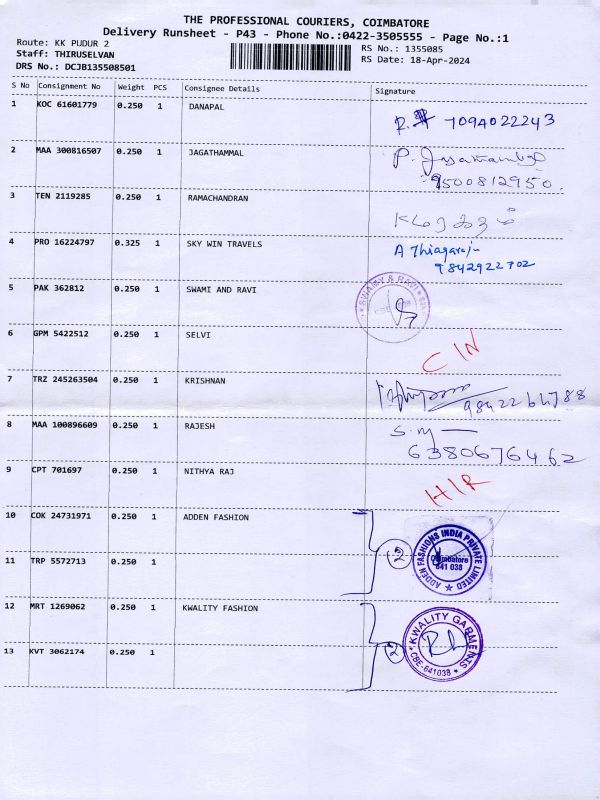 THE PROFESSIONAL COURIERS, COIMBATORE
Delivery Runsheet - P43 - Phone No.:0422-3505555 - Page No.:1
Route: KK PUDUR 2
RS No.: 1355085
Staff: THIRUSELVAN
RS Date: 18-Apr-2024
DRS No.: DCJB135508501
S No Consignment No Weight PCS Consignee Details Signature
1 KOC 61601779 0.250 1 DANAPAL
R. 7094022243
2 MAA 300816507 0.250 1 JAGATHAMMAL
9500812950.
3 TEN 2119285 0.250 1 RAMACHANDRAN
4 PRO 16224797 0.325 1 SKY WIN TRAVELS
A Thiagaraj
9842922702
5 PAK 362812 0.250 1 SWAMI AND RAVI
SWAMY & RAVI
6 GPM 5422512 0.250 1 SELVI
CIN
7 TRZ 245263504 0.250 1 KRISHNAN
8 MAA 100896609 0.250 1 RAJESH
6380676462
9 CPT 701697 0.250 1 NITHYA RAJ
HIR
10 COK 24731971 0.250 1 ADDEN FASHION
2
ADDEN FASHIONS INDIA PRIVATE LIMITED
Coimbatore
641 038
11 TRP 5572713 0.250 1
12 MRT 1269062 0.250 1 KWALITY FASHION
2
KWALITY GARMENTS
CBE-641038
13 KVT 3062174 0.250 1